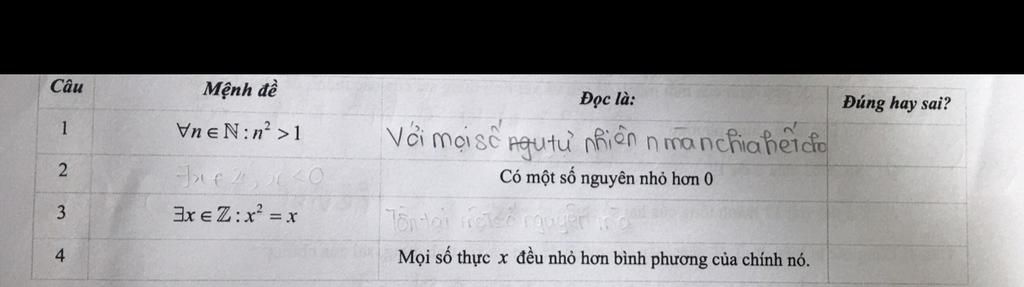 Câu Mệnh đề Đọc là: Đúng hay sai?
1 ∀n ∈ ℕ : n² > 1 Với mọi số ngu tự nhiên n mà n chia hết cho
2 ∃x ∈ ℤ, x < 0 Có một số nguyên nhỏ hơn 0
3 ∃x ∈ ℤ : x² = x Tồn tại một số nguyên mà
4 Mọi số thực x đều nhỏ hơn bình phương của chính nó.